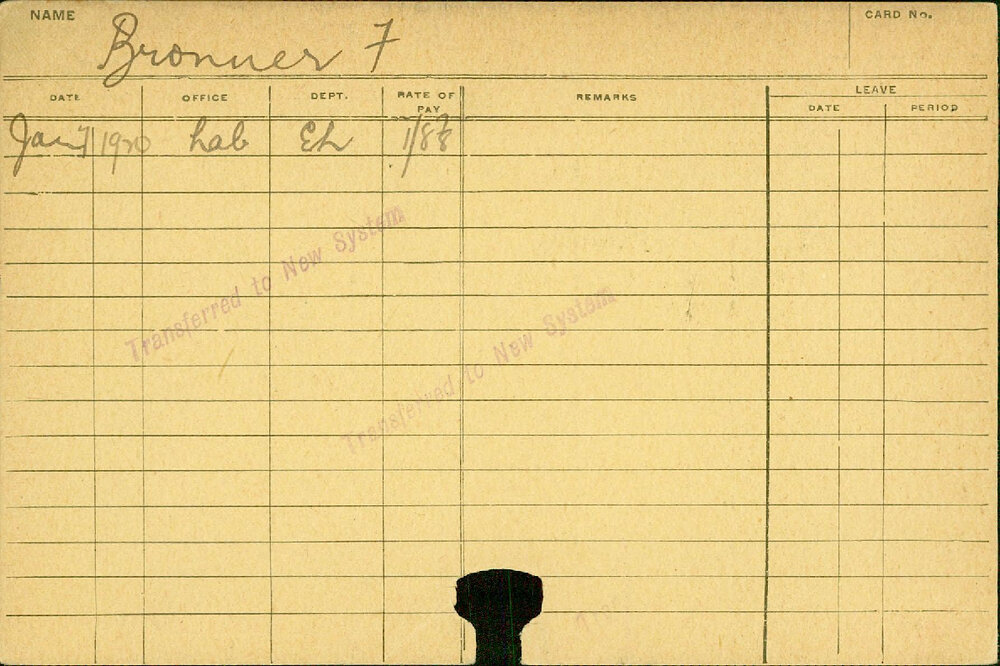 NAME
CARD No.
Bronner F
DATE OFFICE DEPT. RATE OF PAY REMARKS LEAVE
DATE PERIOD
1920 Lab Eh 1/8
Transferred to New System
Transferred to New System